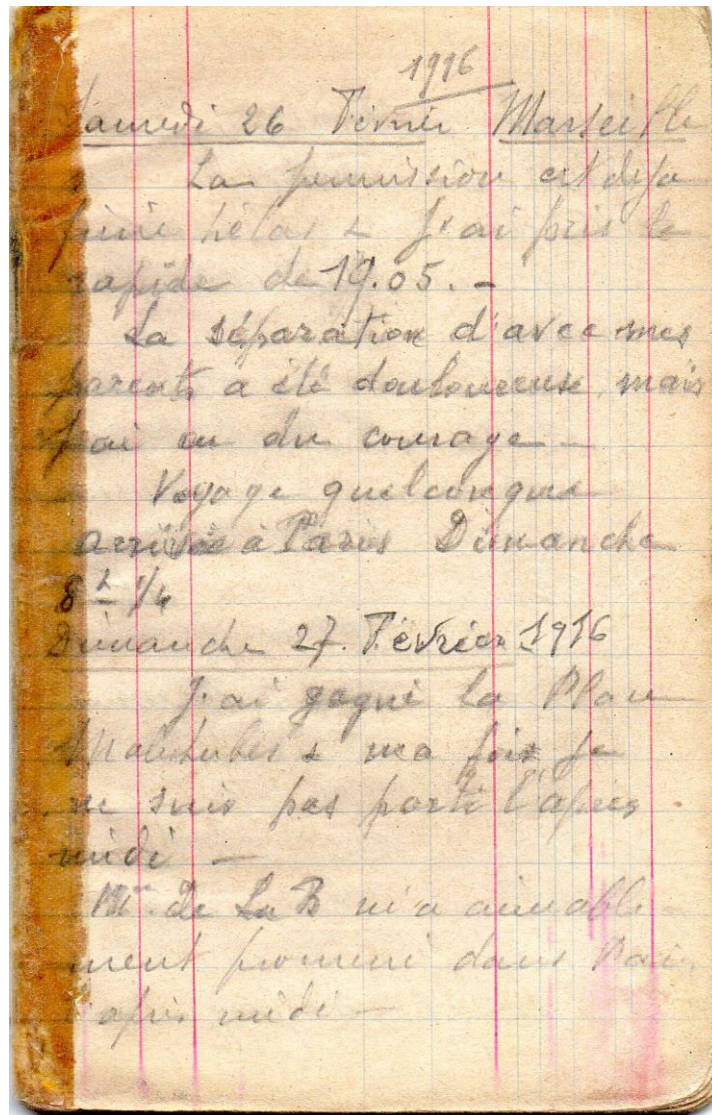 1916
Samedi 26 Février Marseille
La permission est deja
finie hélas & J'ai pris le
rapide de 19.05. -
La séparation d'avec mes
parents a été douloureuse, mais
j'ai eu du courage -
Voyage quelconque
arrivée à Paris Dimanche
8h 1/4
Dimanche 27. Février 1916
J'ai gagné la Place
& ma foi je
ne suis pas parti l'après
midi -
de La B m'a aimable-
ment promené dans Paris
l'après midi -